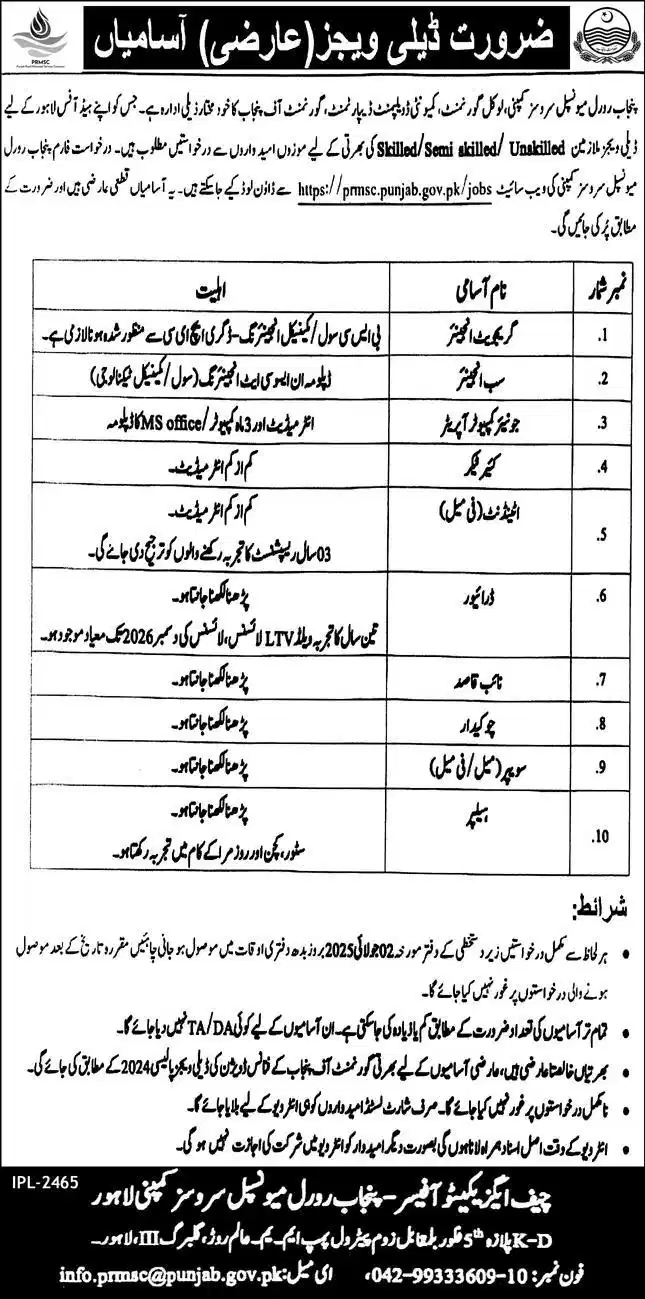 PRMSC
ضرورت ڈیلی ویجز (عارضی) آسامیاں
پنجاب رورل میونسپل سروسز کمپنی، لوکل گورنمنٹ، کمیونٹی ڈویلپمنٹ ڈیپارٹمنٹ، گورنمنٹ آف پنجاب کا خود مختار ذیلی ادارہ ہے۔ جس کو اپنے ہیڈ آفس لاہور کے لیے
ڈیلی ویجز ملازمین Skilled/Semi skilled/ Unskilled کی بھرتی کے لیے موزوں امیدواروں سے درخواستیں مطلوب ہیں۔ درخواست فارم پنجاب رورل
میونسپل سروسز کمپنی کی ویب سائیٹ https://prmsc.punjab.gov.pk/jobs سے ڈاؤن لوڈ کیے جاسکتے ہیں۔ یہ آسامیاں قطعی عارضی ہیں اور ضرورت کے
مطابق پُر کی جائیں گی۔
نمبر شمار نام آسامی اہلیت
1. گریجویٹ انجینئر بی ایس سی سول/کیمیکل انجینئرنگ - ڈگری ایچ ای سی سے منظور شدہ ہونا لازمی ہے۔
2. سب انجینئر ڈپلومہ ان ایسوسی ایٹ انجینئرنگ (سول/کیمیکل ٹیکنالوجی)
3. جونیئر کمپیوٹر آپریٹر انٹرمیڈیٹ اور 3 ماہ کمپیوٹر/MS office کا ڈپلومہ
4. کیئر ٹیکر کم از کم انٹرمیڈیٹ۔
5. اٹینڈنٹ (فی میل) کم از کم انٹرمیڈیٹ۔
03 سال ریسپشنسٹ کا تجربہ رکھنے والوں کو ترجیح دی جائے گی۔
6. ڈرائیور پڑھنا لکھنا جانتا ہو۔
تین سال کا تجربہ ویلڈ LTV لائسنس، لائسنس کی دسمبر 2026 تک معیاد موجود ہو۔
7. نائب قاصد پڑھنا لکھنا جانتا ہو۔
8. چوکیدار پڑھنا لکھنا جانتا ہو۔
9. سویپر (میل/فی میل) پڑھنا لکھنا جانتا ہو۔
10. ہیلپر پڑھنا لکھنا جانتا ہو۔
سٹور، کچن اور روزمرا کے کام میں تجربہ رکھتا ہو۔
شرائط:
• ہر لحاظ سے مکمل درخواستیں زیر دستخطی کے دفتر مورخہ 02 جولائی 2025 بروز بدھ دفتری اوقات میں موصول ہو جانی چاہئیں مقررہ تاریخ کے بعد موصول
ہونے والی درخواستوں پر غور نہیں کیا جائے گا۔
• تمام تر آسامیوں کی تعداد ضرورت کے مطابق کم یا زیادہ کی جاسکتی ہے۔ ان آسامیوں کے لیے کوئی TA/DA نہیں دیا جائے گا۔
• بھرتیاں خالصتا عارضی ہیں، عارضی آسامیوں کے لیے بھرتی گورنمنٹ آف پنجاب کے فنانس ڈویژن کی ڈیلی ویجز پالیسی 2024 کے مطابق کی جائے گی۔
• نامکمل درخواستوں پر غور نہیں کیا جائے گا۔ صرف شارٹ لسٹڈ امیدواروں کو ہی انٹرویو کے لیے بلایا جائے گا۔
• انٹرویو کے وقت اصل اسناد ہمراہ لانا ہوں گی بصورت دیگر امیدوار کو انٹرویو میں شرکت کی اجازت نہیں ہو گی۔
IPL-2465
چیف ایگزیکیٹو آفیسر - پنجاب رورل میونسپل سروسز کمپنی لاہور
K-D پلازہ 5th فلور بلمقابل زوم پیٹرول پمپ ایم۔ ایم۔ عالم روڈ، گلبرگ III، لاہور۔
فون نمبر: 10-042-99333609، ای میل: info.prmsc@punjab.gov.pk